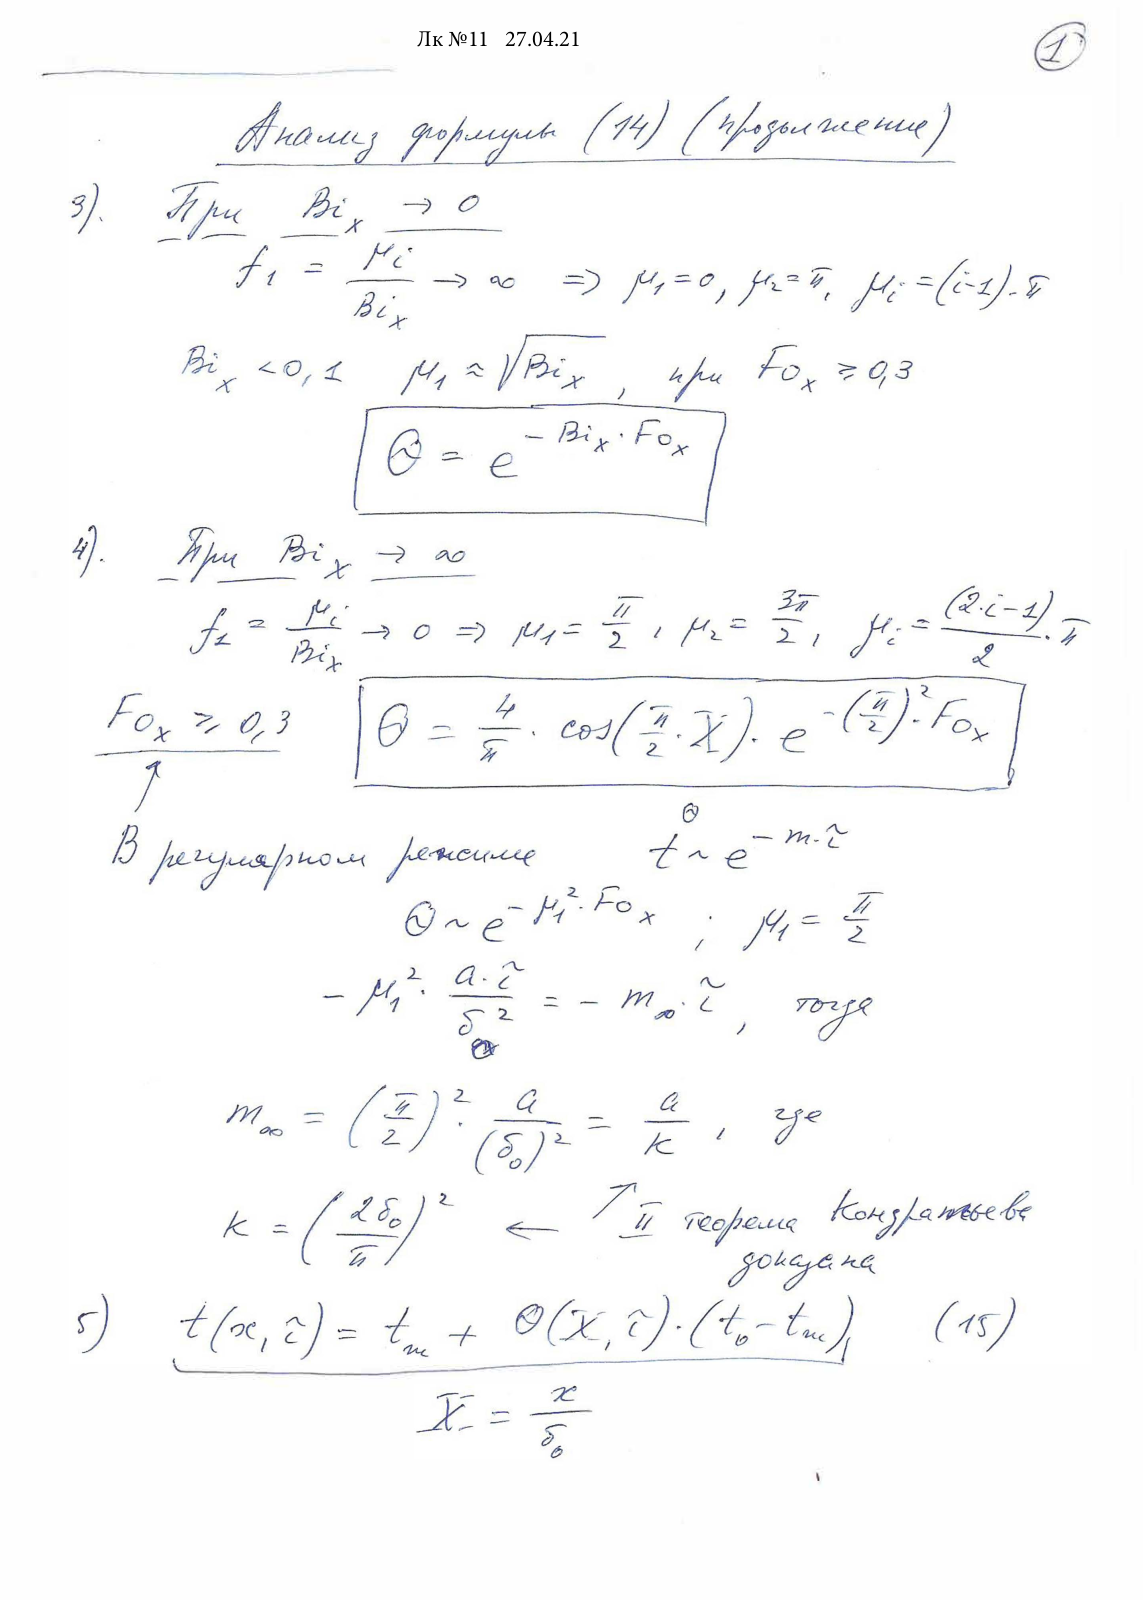 Лк №11 27.04.21
1
Анализ формулы (14) (продолжение)
3). При Biₓ → 0
f₁ = μᵢ/Biₓ → ∞ => μ₁=0, μ₂=π, μᵢ=(i-1)·π
Biₓ <0,1 μ₁ ≈ √Biₓ, при Foₓ ≥ 0,3
Θ = e^(-Biₓ·Foₓ)
4). При Biₓ → ∞
f₁ = μᵢ/Biₓ → 0 => μ₁= π/2, μ₂= 3π/2, μᵢ= (2·i-1)/2·π
Foₓ ≥ 0,3 Θ = 4/π · cos(π/2·X)· e^(-(π/2)²·Foₓ)
Θ
В регулярном режиме t ~ e^(-m·τ)
Θ ~ e^(-μ₁²·Foₓ) ; μ₁= π/2
- μ₁²· a·τ/δ₀² = - m∞·τ, тогда
m∞ = (π/2)²· a/(δ₀)² = a/k, где
k = (2δ₀/π)² ← ↑ II теорема Кондратьева
доказана
5) t(x,τ)= tж + Θ(X,τ)·(t₀-tж), (15)
X = x/δ₀